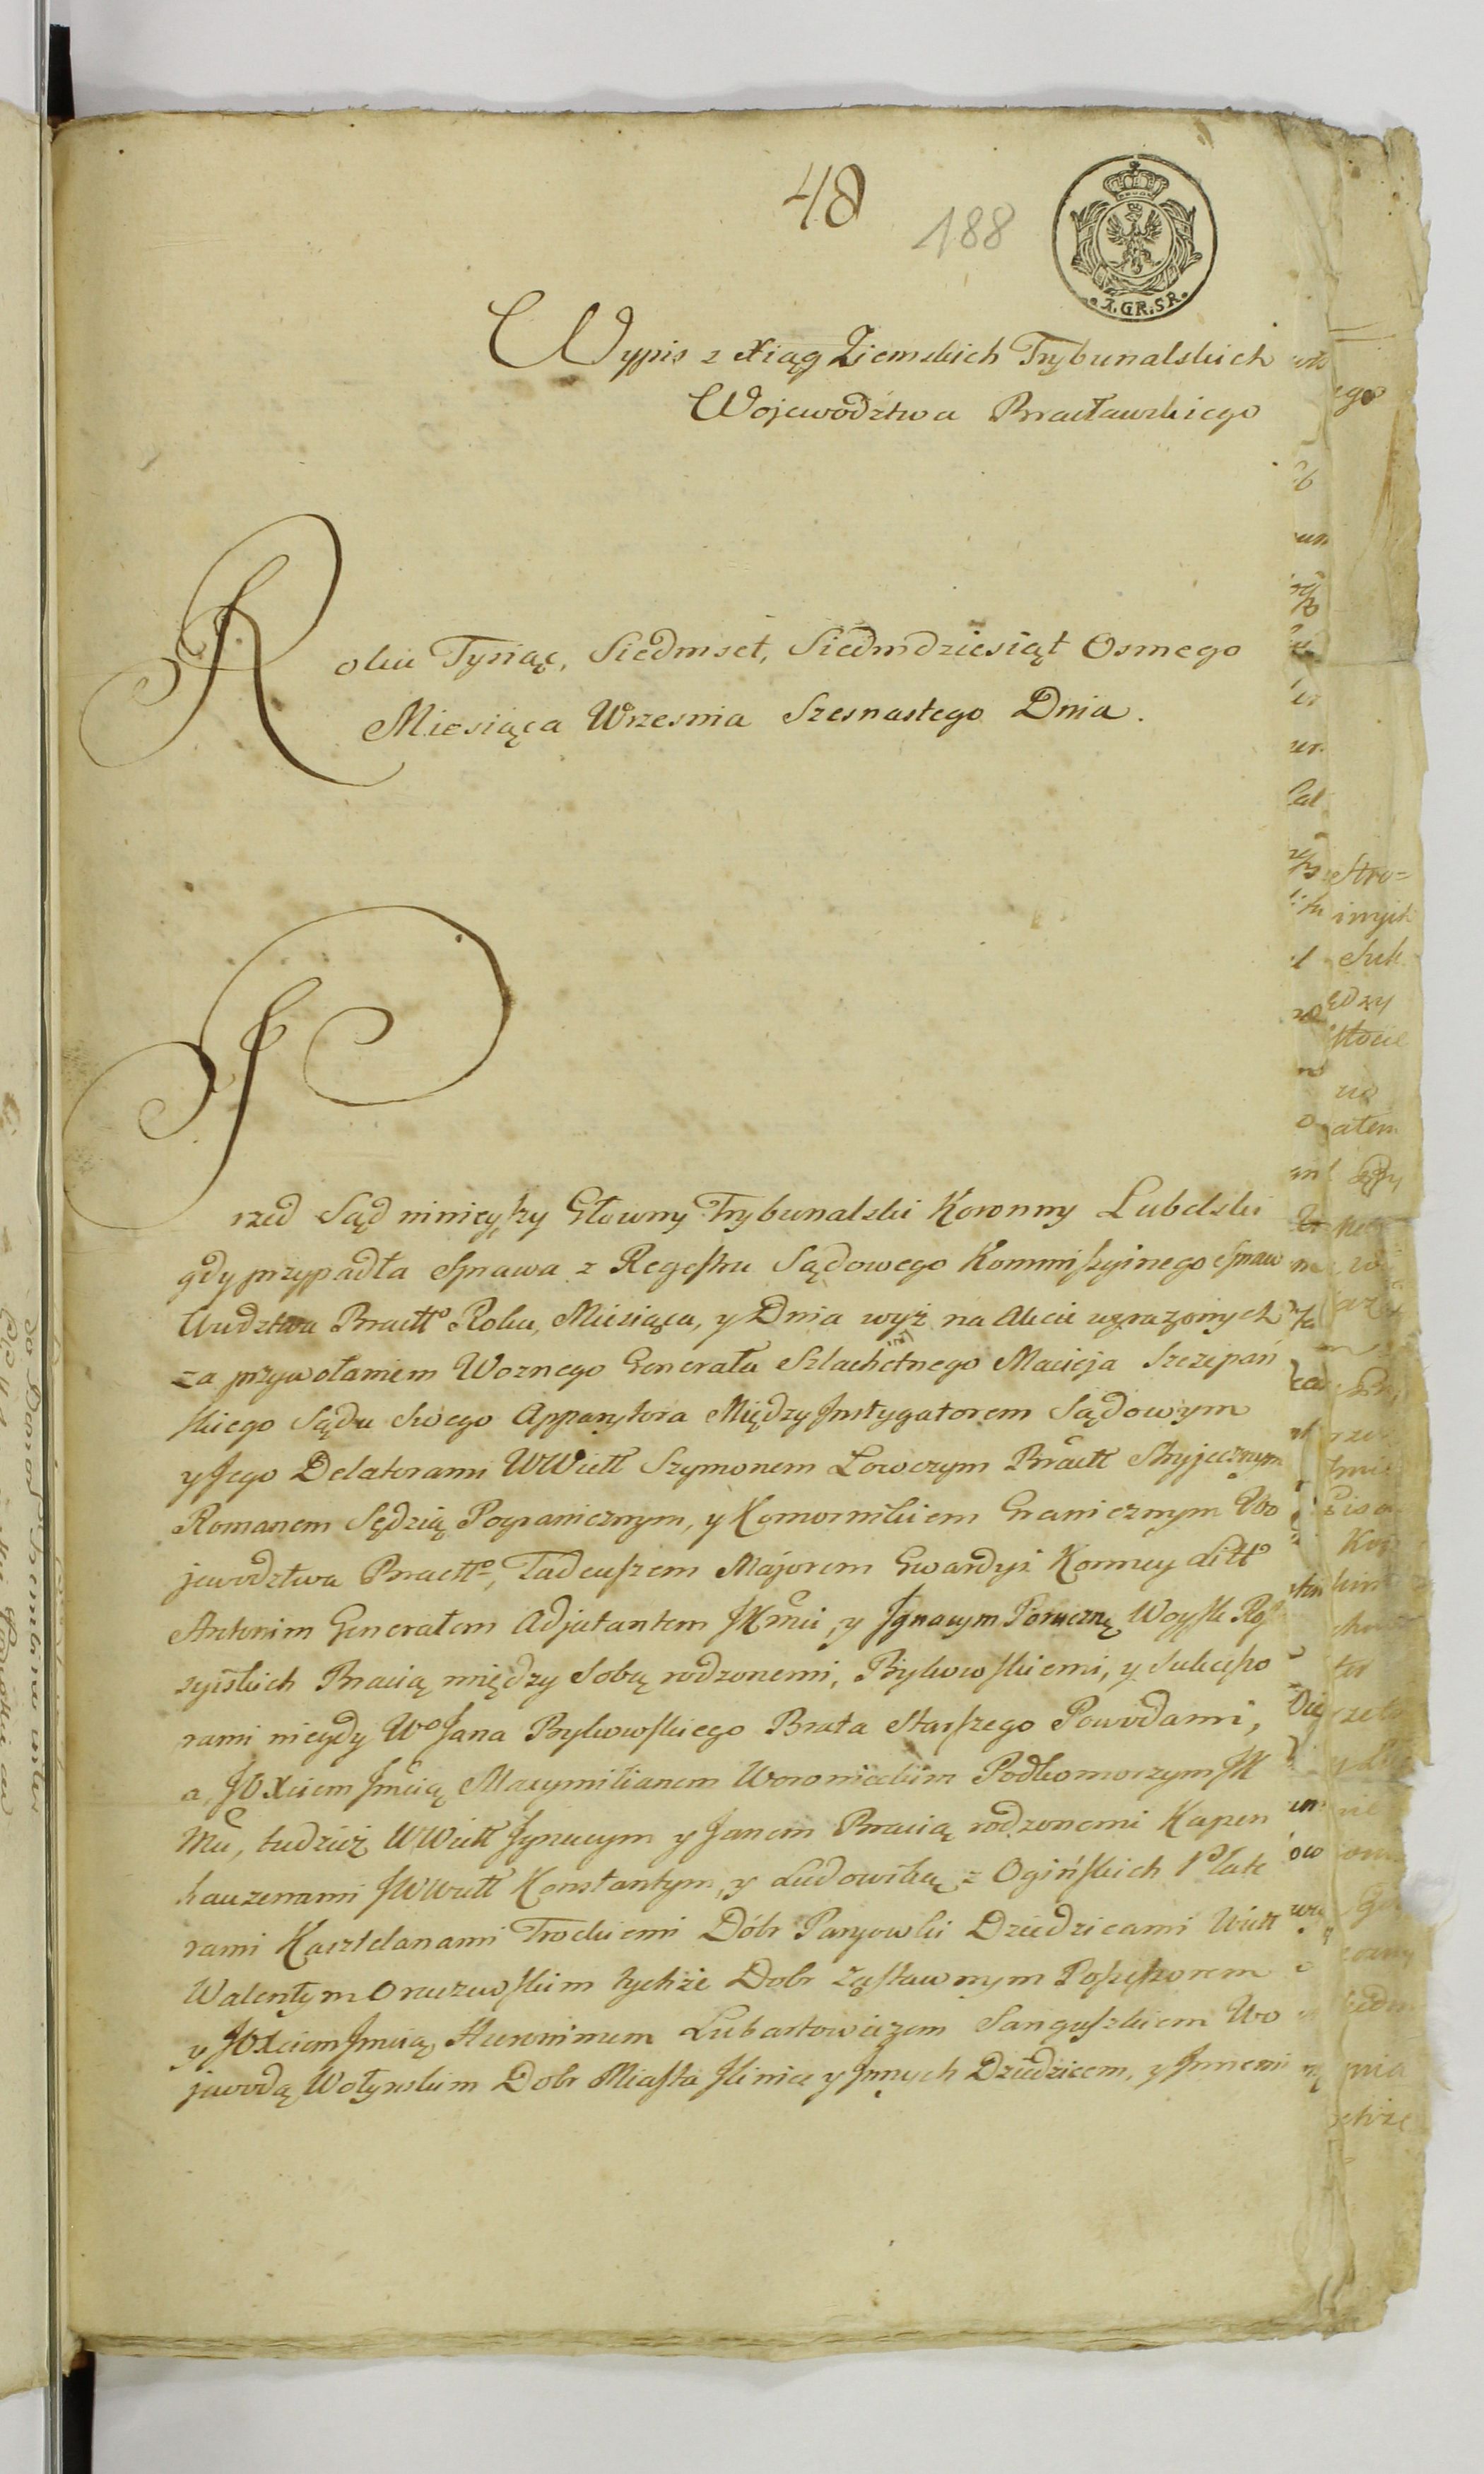 48
188
1.GR.SR.
Wypis z Xiąg Ziemskich Trybunalskich
Wojewodztwa Bracławskiego
Roku Tysiąc, Siedmset, Siedmdziesiąt Osmego
Miesiąca Wrzesnia Szesnastego Dnia.
Przed Sąd ninieyszy Głowny Trybunalski Koronny Lubelski
gdy przypadła Sprawa z Regestru Sądowego Kommissyinego Spraw
Wudztwa Bracłło Roku, Miesiąca, y Dnia wyż na Akcie wyrazonych
za przywołaniem Woznego Generała Szlachetnego Macieja Szczepań
skiego Sądu Swego Apparytora Między Instygatorem Sądowym
y Jego Delatorami WWiełł Szymonem Łowczym Bracłł Stryjecznym
Romanem Sędzią Pogranicznym, y Komornikiem Granicznym Wo
jewodztwa Bracłło, Tadeuszem Majorem Gwardyi Konney Litto
Antonim Generałem Adjutantem JKmci, y Ignacym Poruczną Woysk Ros
syiskich Bracią między Sobą rodzonemi, Bykowskiemi, y Sukcesso
rami niegdy Wo Jana Bykowskiego Brata Starszego Powodami,
a, JOXciem Jmcią Maxymilianem Woronieckim Podkomorzym JK
Mci, tudzież WWiełł Ignacym y Janem Bracią rodzonemi Kapen
hauzenami JWWiełł Konstantym, y Ludowiką z Ogińskich Plate
rami Kasztelanami Trockiemi Dóbr Paryowki Dziedzicami Wiełł
Walentym Oraczewskim tychże Dobr Zastawnym Possessorem
y JOXciem Jmcią Hieronimem Lubartowiczem Sanguszkiem Wo
jewodą Wołynskim Dobr Miasta Ilinice y Innych Dziedzicem, y Innemi